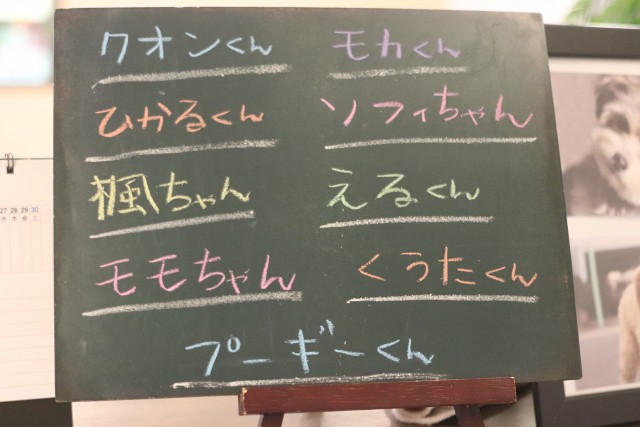 クオンくん モカくん
ひかるくん ソフィちゃん
楓ちゃん えるくん
モモちゃん くうたくん
プーギーくん
27 28 29 30